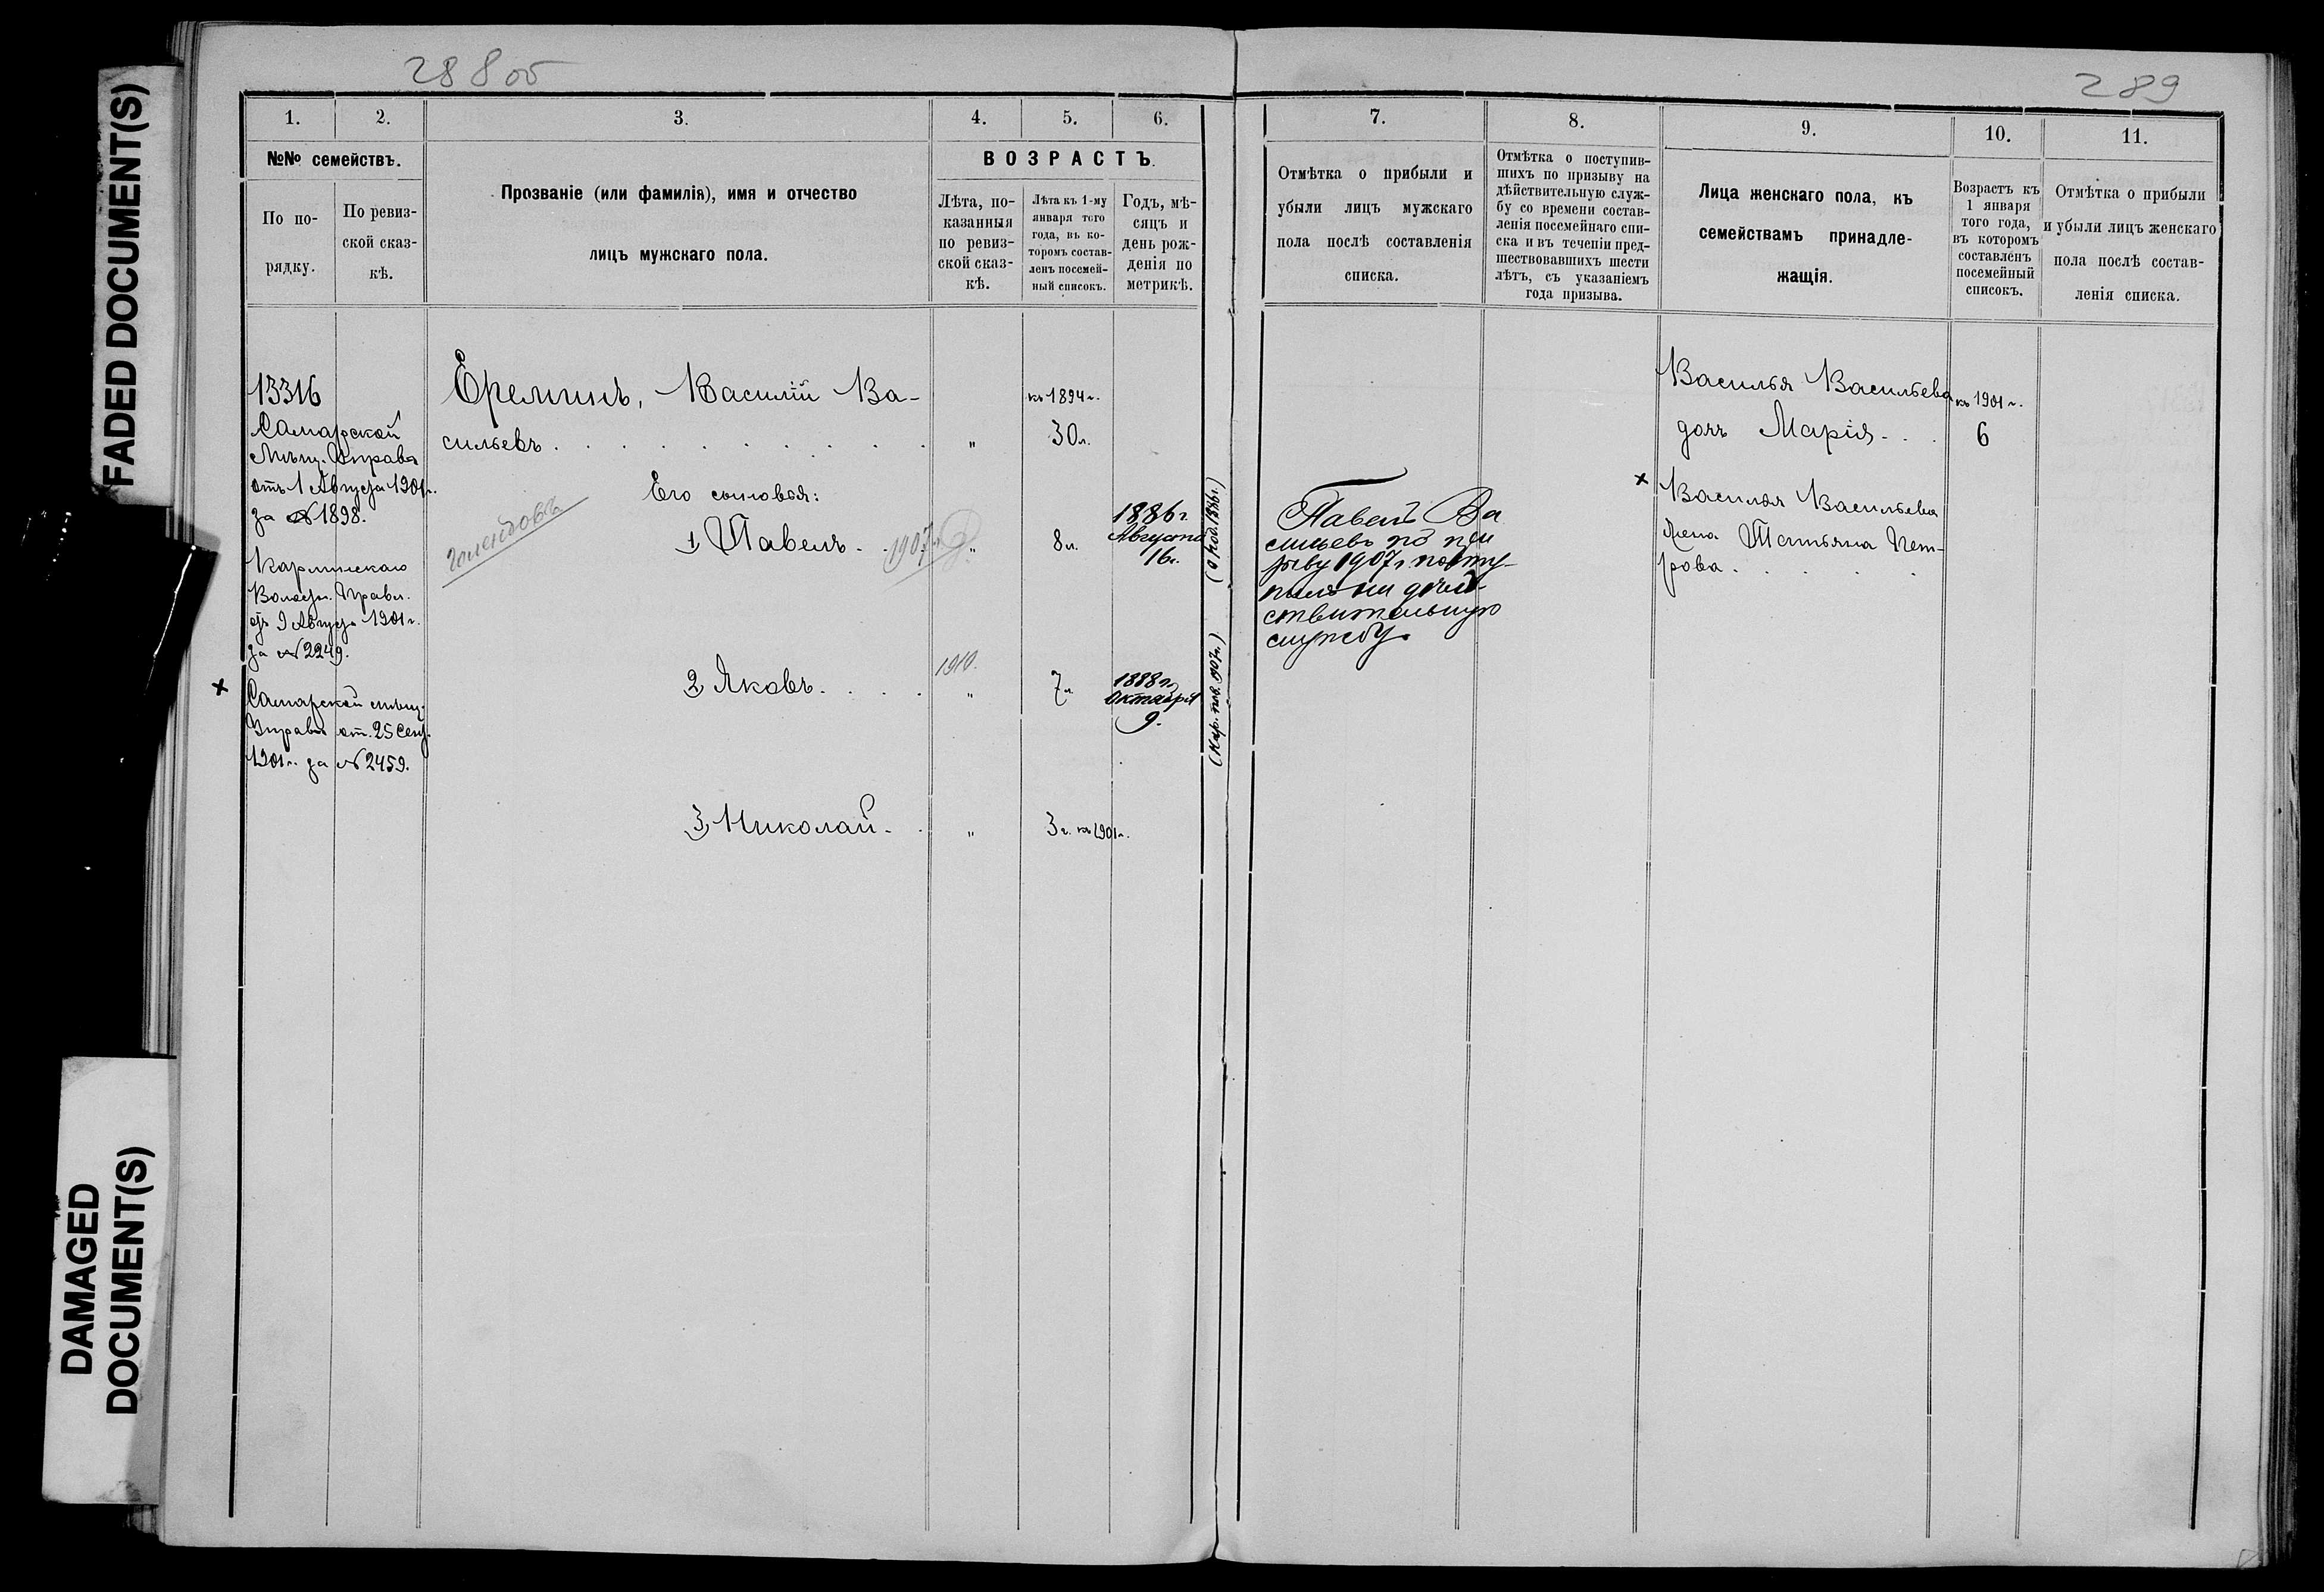 FADED DOCUMENT(S)
DAMAGED
DOCUMENT(S)
288об
289
1.
2.
3.
4.
5.
6.
№№ семействъ.
По по-
рядку.
По ревиз-
ской сказ-
кѣ.
Прозваніе (или фамилія), имя и отчество
лицъ мужскаго пола.
ВОЗРАСТЪ.
Лѣта, по-
казанныя
по ревиз-
ской сказ-
кѣ.
Лѣта къ 1-му
января того
года, въ ко-
торомъ состав-
ленъ посемей-
ный списокъ.
Годъ, мѣ-
сяцъ и
день рож-
денія по
метрикѣ.
13316
Самарской
Мѣщ. Управы
отъ 1 Августа 1901 г.
за № 1898.
Волост. Правл.
отъ 9 Августа 1901 г.
за № 2249.
× Самарской мѣщ.
Управы от. 25 Сент.
1901 г. за № 2459.
Ереминъ, Василій Ва-
сильевъ . . . . . . . . .
"
къ 1894 г.
30 л.
Его сыновья:
1, Павелъ . . 1907 г.
"
8 л.
1886 г.
Августа
16 г.
2, Яковъ. . . .
1910.
"
7 л.
1888 г.
Октября
9.
3, Николай. .
"
3 г. къ 1901 г.
7.
8.
9.
10.
11.
Отмѣтка о прибыли и
убыли лицъ мужскаго
пола послѣ составленія
списка.
Отмѣтка о поступив-
шихъ по призыву на
дѣйствительную служ-
бу со времени состав-
ленія посемейнаго спи-
ска и въ теченіи пред-
шествовавшихъ шести
лѣтъ, съ указаніемъ
года призыва.
Лица женскаго пола, къ
семействамъ принадле-
жащія.
Возрастъ къ
1 января
того года,
въ которомъ
составленъ
посемейный
списокъ.
Отмѣтка о прибыли
и убыли лицъ женскаго
пола послѣ состав-
ленія списка.
Павелъ Ва
сильевъ по при
зыву 1907 г. посту-
пилъ на дѣй-
ствительную
службу.
Василья Васильева
дочь Марія . . .
къ 1901 г.
6
× Василья Васильева
жена Татьяна Пет-
рова . . . .